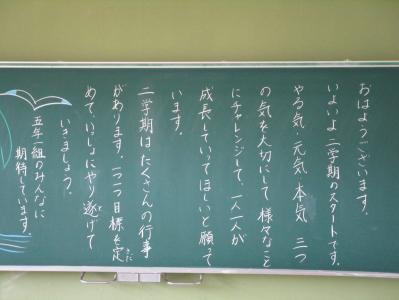 おはようございます。
いよいよ二学期のスタートです。
やる気・元気・本気 三つ
の気を大切にして 様々なこと
にチャレンジして、一人一人が
成長していってほしいと願って
います。
二学期はたくさんの行事
があります。一つ一つ目標を定
めて、いっしょにやり遂げて
いきましょう。
五年一組のみんなに
期待しています。